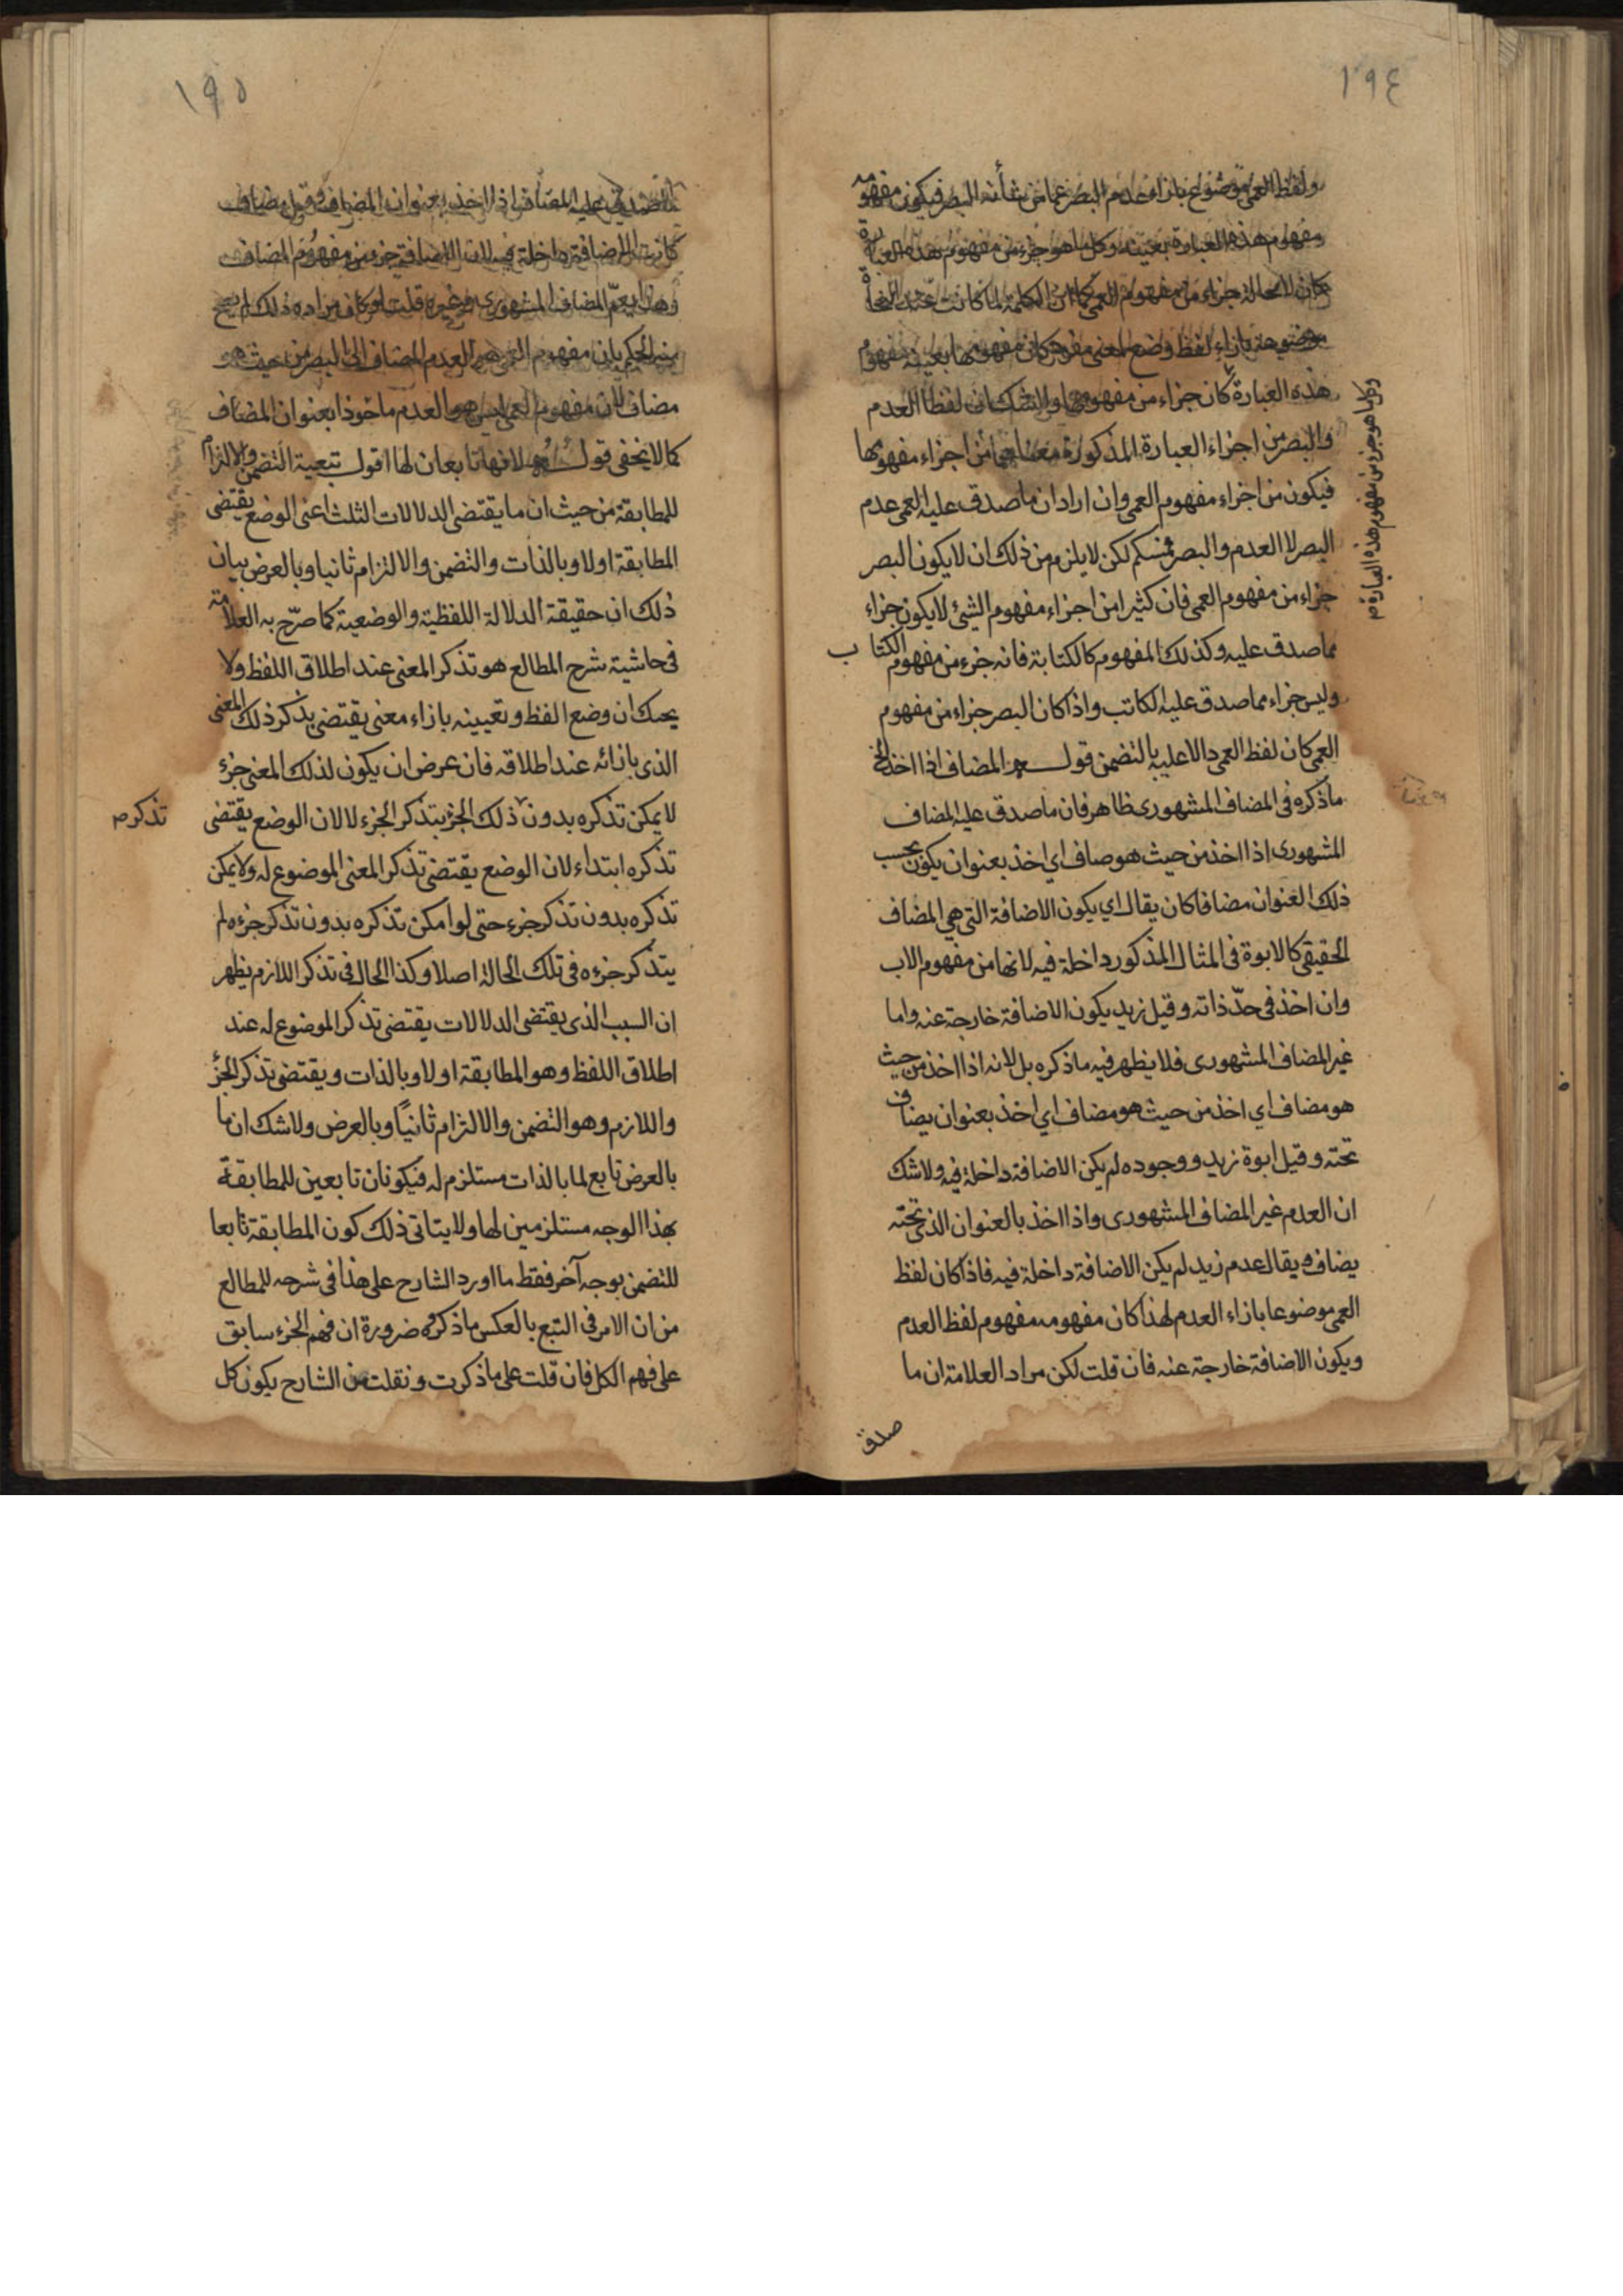 ١٩٤
ولفظ العمى موضوع بازاء عدم البصر عما من شأنه البصر فيكون مفهومه
مفهوم هذه العبارة بعينه وكل ما هو جزء من مفهوم هذه العبارة
كان لا محالة جزاء من مفهوم العمى كما ان الكلمة لما كانت عند النحاة
موضوعة بازاء لفظ وضع لمعنى مفرد كان مفهومها بعينه مفهوم
هذه العبارة كان جزاء من مفهومها ولا شك ان لفظ العدم
والبصر من اجزاء العبارة المذكورة معناهما من اجزاء مفهومها
فيكون من اجزاء مفهوم العمى وان اراد ان ما صدق عليه العمى عدم
البصر لا العدم والبصر فمسلم لكن لا يلزم من ذلك ان لا يكون البصر
جزاء من مفهوم العمى فان كثيرا من اجزاء مفهوم الشئ لا يكون جزاء
مما صدق عليه وكذلك المفهوم كالكتابة فانه جزء من مفهوم الكتاب
وليس جزاء مما صدق عليه الكاتب واذا كان البصر جزاء من مفهوم
العمى كان لفظ العمى دالا عليه بالتضمن قوله المضاف اذا اخذ الخ
ماذكره في المضاف المشهورى ظاهر فان ما صدق عليه المضاف
المشهورى اذا اخذ من حيث هو صاف اي اخذ بعنوان يكون بحسب
ذلك العنوان مضافا كان يقال اي يكون الاضافة التي هي المضاف
الحقيقي كالابوة في المثال المذكور داخلة فيه لانها من مفهوم الاب
وان اخذ في حدّ ذاته وقيل زيد يكون الاضافة خارجة عنه واما
غير المضاف المشهورى فلا يظهر فيه ماذكره بل لانه اذا اخذ من حيث
هو مضاف اي اخذ من حيث هو مضاف اي اخذ بعنوان يضاف
تحته وقيل ابوة زيد ووجوده لم يكن الاضافة داخلة فيه ولا شك
ان العدم غير المضاف المشهورى واذا اخذ بالعنوان الذي تحته
يضاف ويقال عدم زيد لم يكن الاضافة داخلة فيه فاذا كان لفظ
العمى موضوعا بازاء العدم لهذا كان مفهومه مفهوم لفظ العدم
ويكون الاضافة خارجة عنه فان قلت لكن مراد العلامة ان ما
صدق
وكل ما هو جزء من مفهوم هذه العبارة م
١٩٥
صدق عليه المضاف اذا اخذ بعنوان المضاف وقيل مضاف
كانت الاضافة داخلة فيه لان الاضافة جزء من مفهوم المضاف
وهذا يعمّ المضاف المشهورى وغيره قلت لو كان مراده ذلك لم يصح
منه الحكم بان مفهوم العمى هو العدم المضاف الى البصر من حيث هو
مضاف لان مفهوم العمى ليس هو العدم ماخوذا بعنوان المضاف
كما لا يخفى قوله لانها تابعان لها اقول تبعية التضمن والالتزام
للمطابقة من حيث ان ما يقتضى الدلالات الثلث اعنى الوضع يقتضى
المطابقة اولا وبالذات والتضمن والالتزام ثانيا وبالعرض بيان
ذلك ان حقيقة الدلالة اللفظية والوضعية كما صرّح به العلامة
في حاشية شرح المطالع هو تذكر المعنى عند اطلاق اللفظ ولا
يحبك ان وضع الفظ وتعيينه بازاء معنى يقتضى يذكر ذلك المعنى
الذى بازائه عند اطلاقه فان عرض ان يكون لذلك المعنى جزء
لا يمكن تذكره بدون ذلك الجزء يتذكر الجزء لا لان الوضع يقتضى
تذكره ابتداء لان الوضع يقتضى تذكر المعنى الموضوع له ولا يمكن
تذكره بدون تذكر جزء حتى لو امكن تذكره بدون تذكر جزءه لم
يتذكر جزءه في تلك الحالة اصلا وكذا الحال في تذكر اللازم يظهر
ان السبب الذى يقتضى الدلالات يقتضى تذكر الموضوع له عند
اطلاق اللفظ وهو المطابقة اولا وبالذات ويقتضى تذكر الجزء
واللازم وهو التضمن والالتزام ثانيًا وبالعرض ولا شك ان ما
بالعرض تابع لما بالذات مستلزم له فيكونان تابعين للمطابقة
بهذا الوجه مستلزمين لها ولا يتاتى ذلك كون المطابقة تابعا
للتضمن بوجه آخر فقط ما اورد الشارح على هذا في شرحه للمطالع
من ان الامر في التبع بالعكس ماذكره ضرورة ان فهم الجزء سابق
على فهم الكل فان قلت على ماذكرت ونقلت من الشارح يكون كل
تذكره م